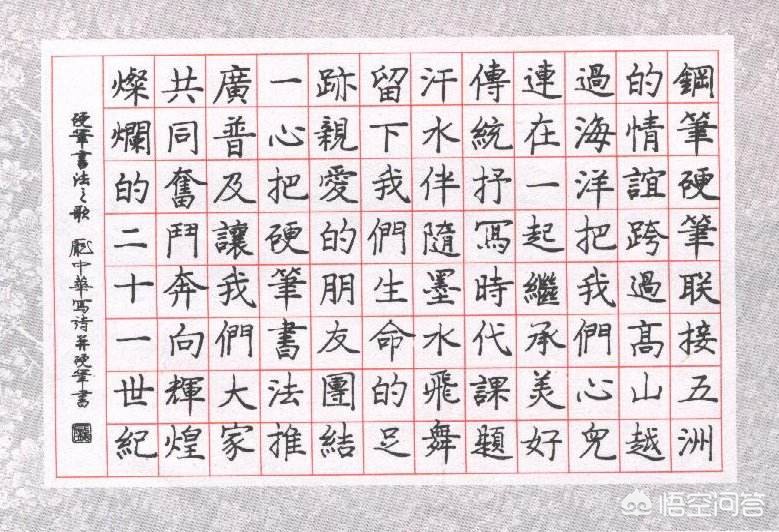 鋼筆硬筆联接五洲
的情誼跨過高山越
過海洋把我們心兒
連在一起繼承美好
傳統抒寫時代課題
汗水伴隨墨水飛舞
留下我們生命的足
跡親愛的朋友團結
一心把硬筆書法推
廣普及讓我們大家
共同奮鬥奔向輝煌
燦爛的二十一世紀
硬筆書法之歌 龐中華寫诗并硬筆書
悟空问答